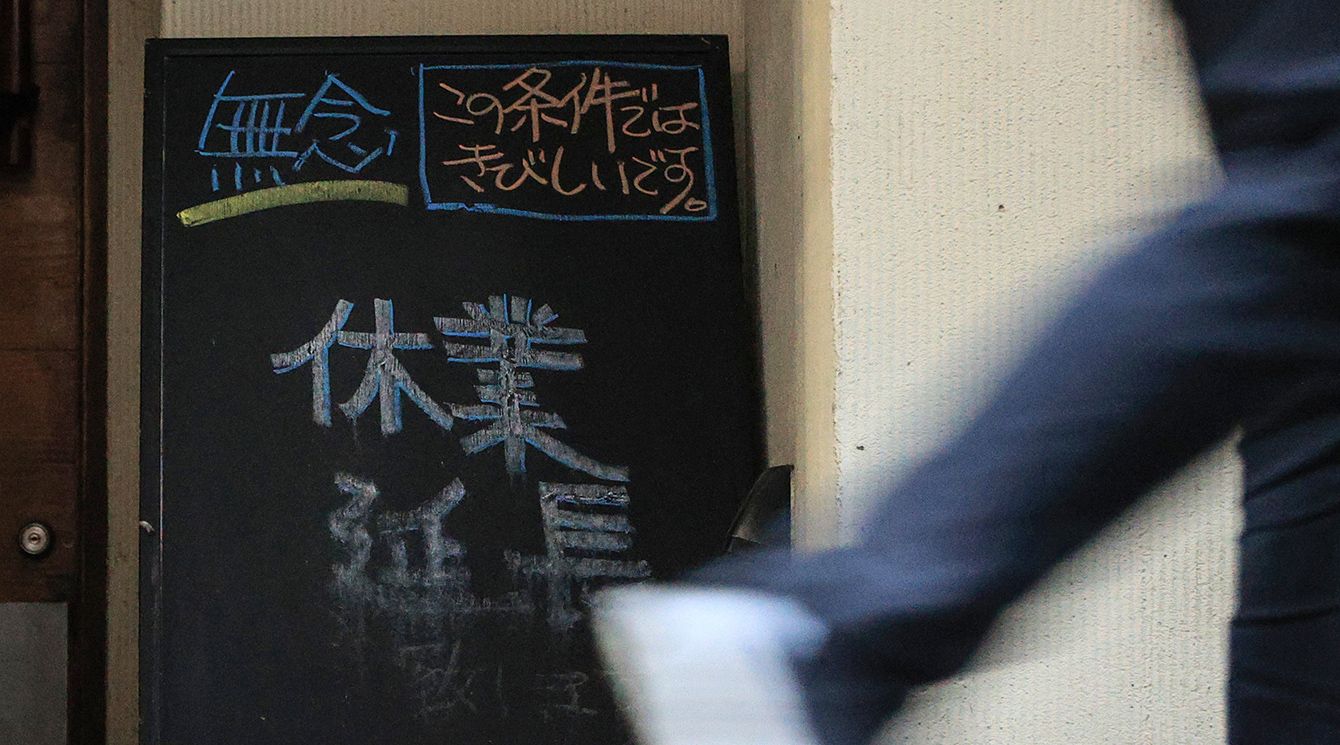 無念
この条件では
きびしいです。
休業
延長
致しま